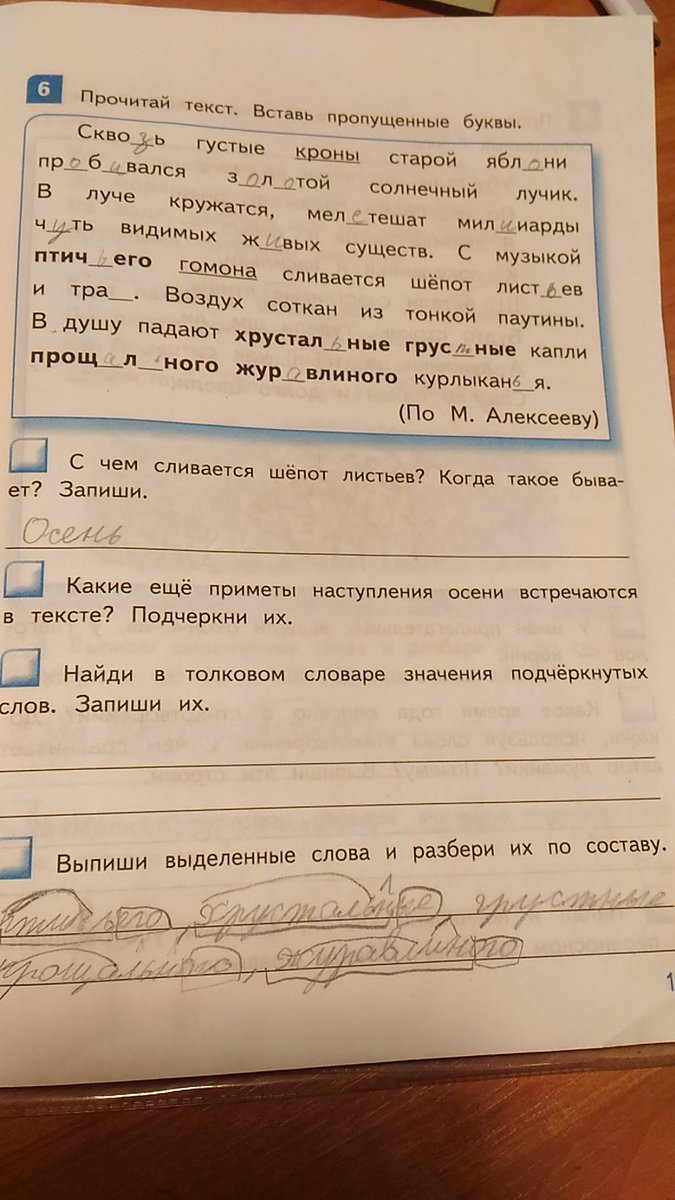 6 Прочитай текст. Вставь пропущенные буквы.
Сквозь густые кроны старой яблони
пробивался золотой солнечный лучик.
В луче кружатся, мелетешат милииарды
чуть видимых живых существ. С музыкой
птичьего гомона сливается шёпот листьев
и тра__. Воздух соткан из тонкой паутины.
В душу падают хрустальные грустные капли
прощального журавлиного курлыканья.
(По М. Алексееву)
С чем сливается шёпот листьев? Когда такое быва-
ет? Запиши.
Осень
Какие ещё приметы наступления осени встречаются
в тексте? Подчеркни их.
Найди в толковом словаре значения подчёркнутых
слов. Запиши их.
Выпиши выделенные слова и разбери их по составу.
птичьего, хрустальные, грустные
прощального, журавлиного
1